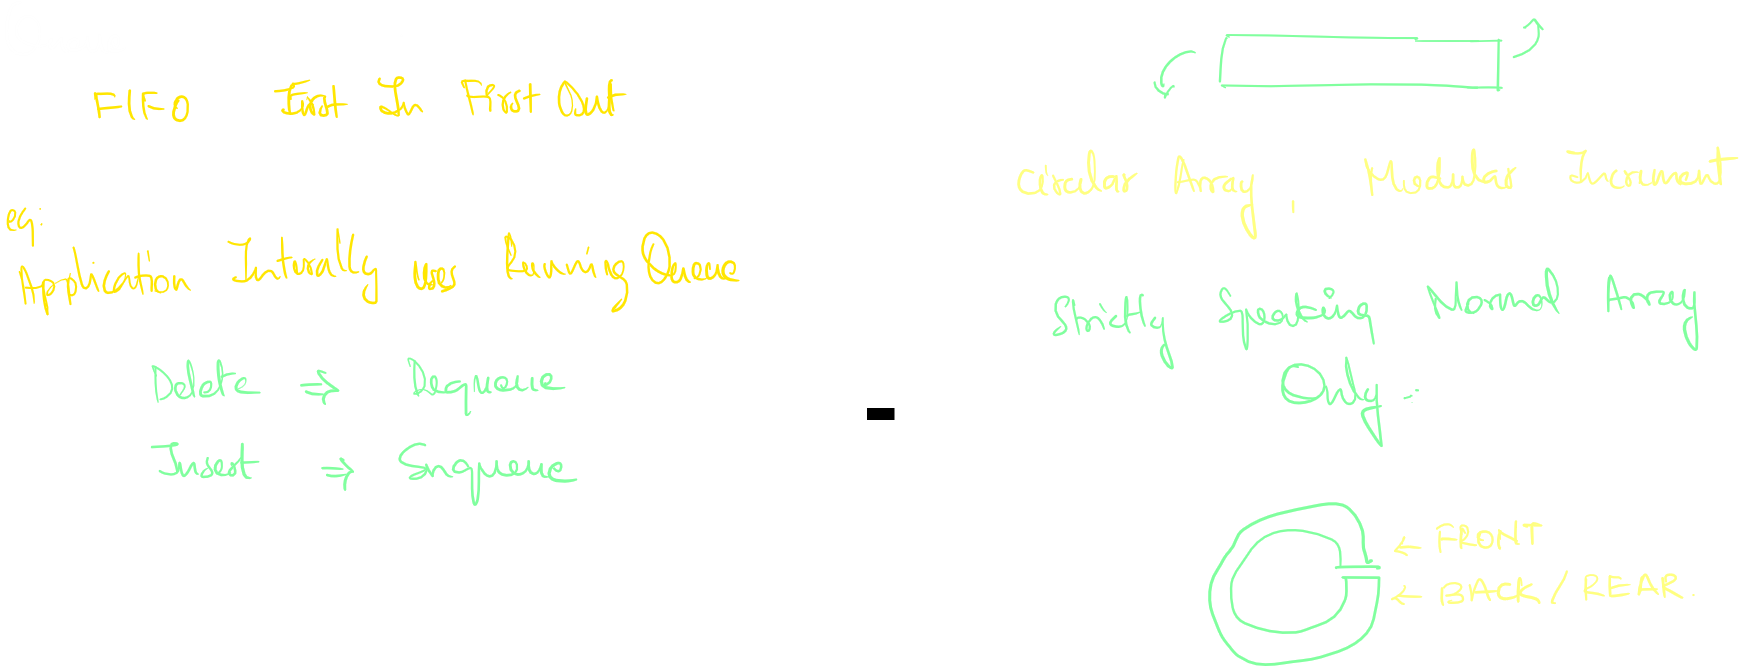 FIFO First In First Out
eg:
Application Internally uses Running Queue
Delete ⇒ Dequeue
Insert ⇒ Enqueue
Circular Array, Modular Increment
Strictly Speaking Normal Array
Only..
← FRONT
← BACK / REAR.